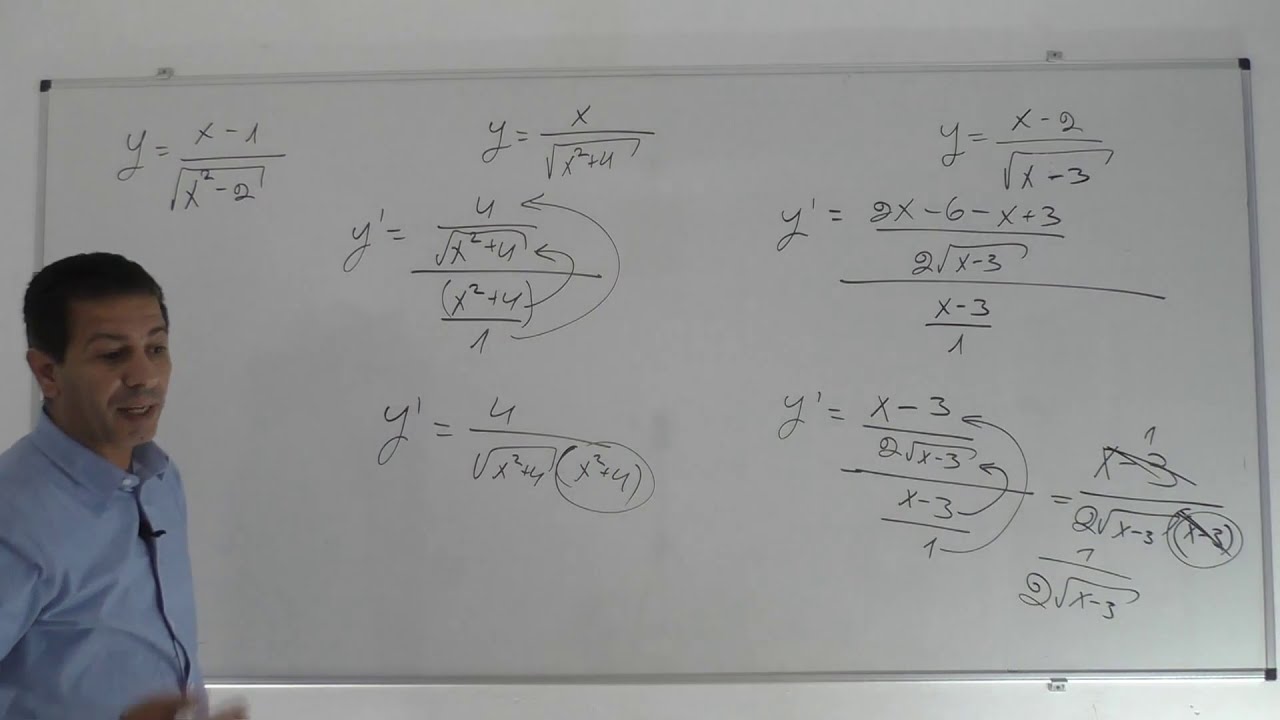 y = (x - 1) / √(x² - 2)
y = x / √(x² + 4)
y' = (4 / √(x² + 4)) / ((x² + 4) / 1)
y' = 4 / (√(x² + 4) (x² + 4))
y = (x - 2) / √(x - 3)
y' = ((2x - 6 - x + 3) / (2√(x - 3))) / ((x - 3) / 1)
y' = ((x - 3) / (2√(x - 3))) / ((x - 3) / 1) = (x - 3) / (2√(x - 3) · (x - 3))
1
1 / (2√(x - 3))